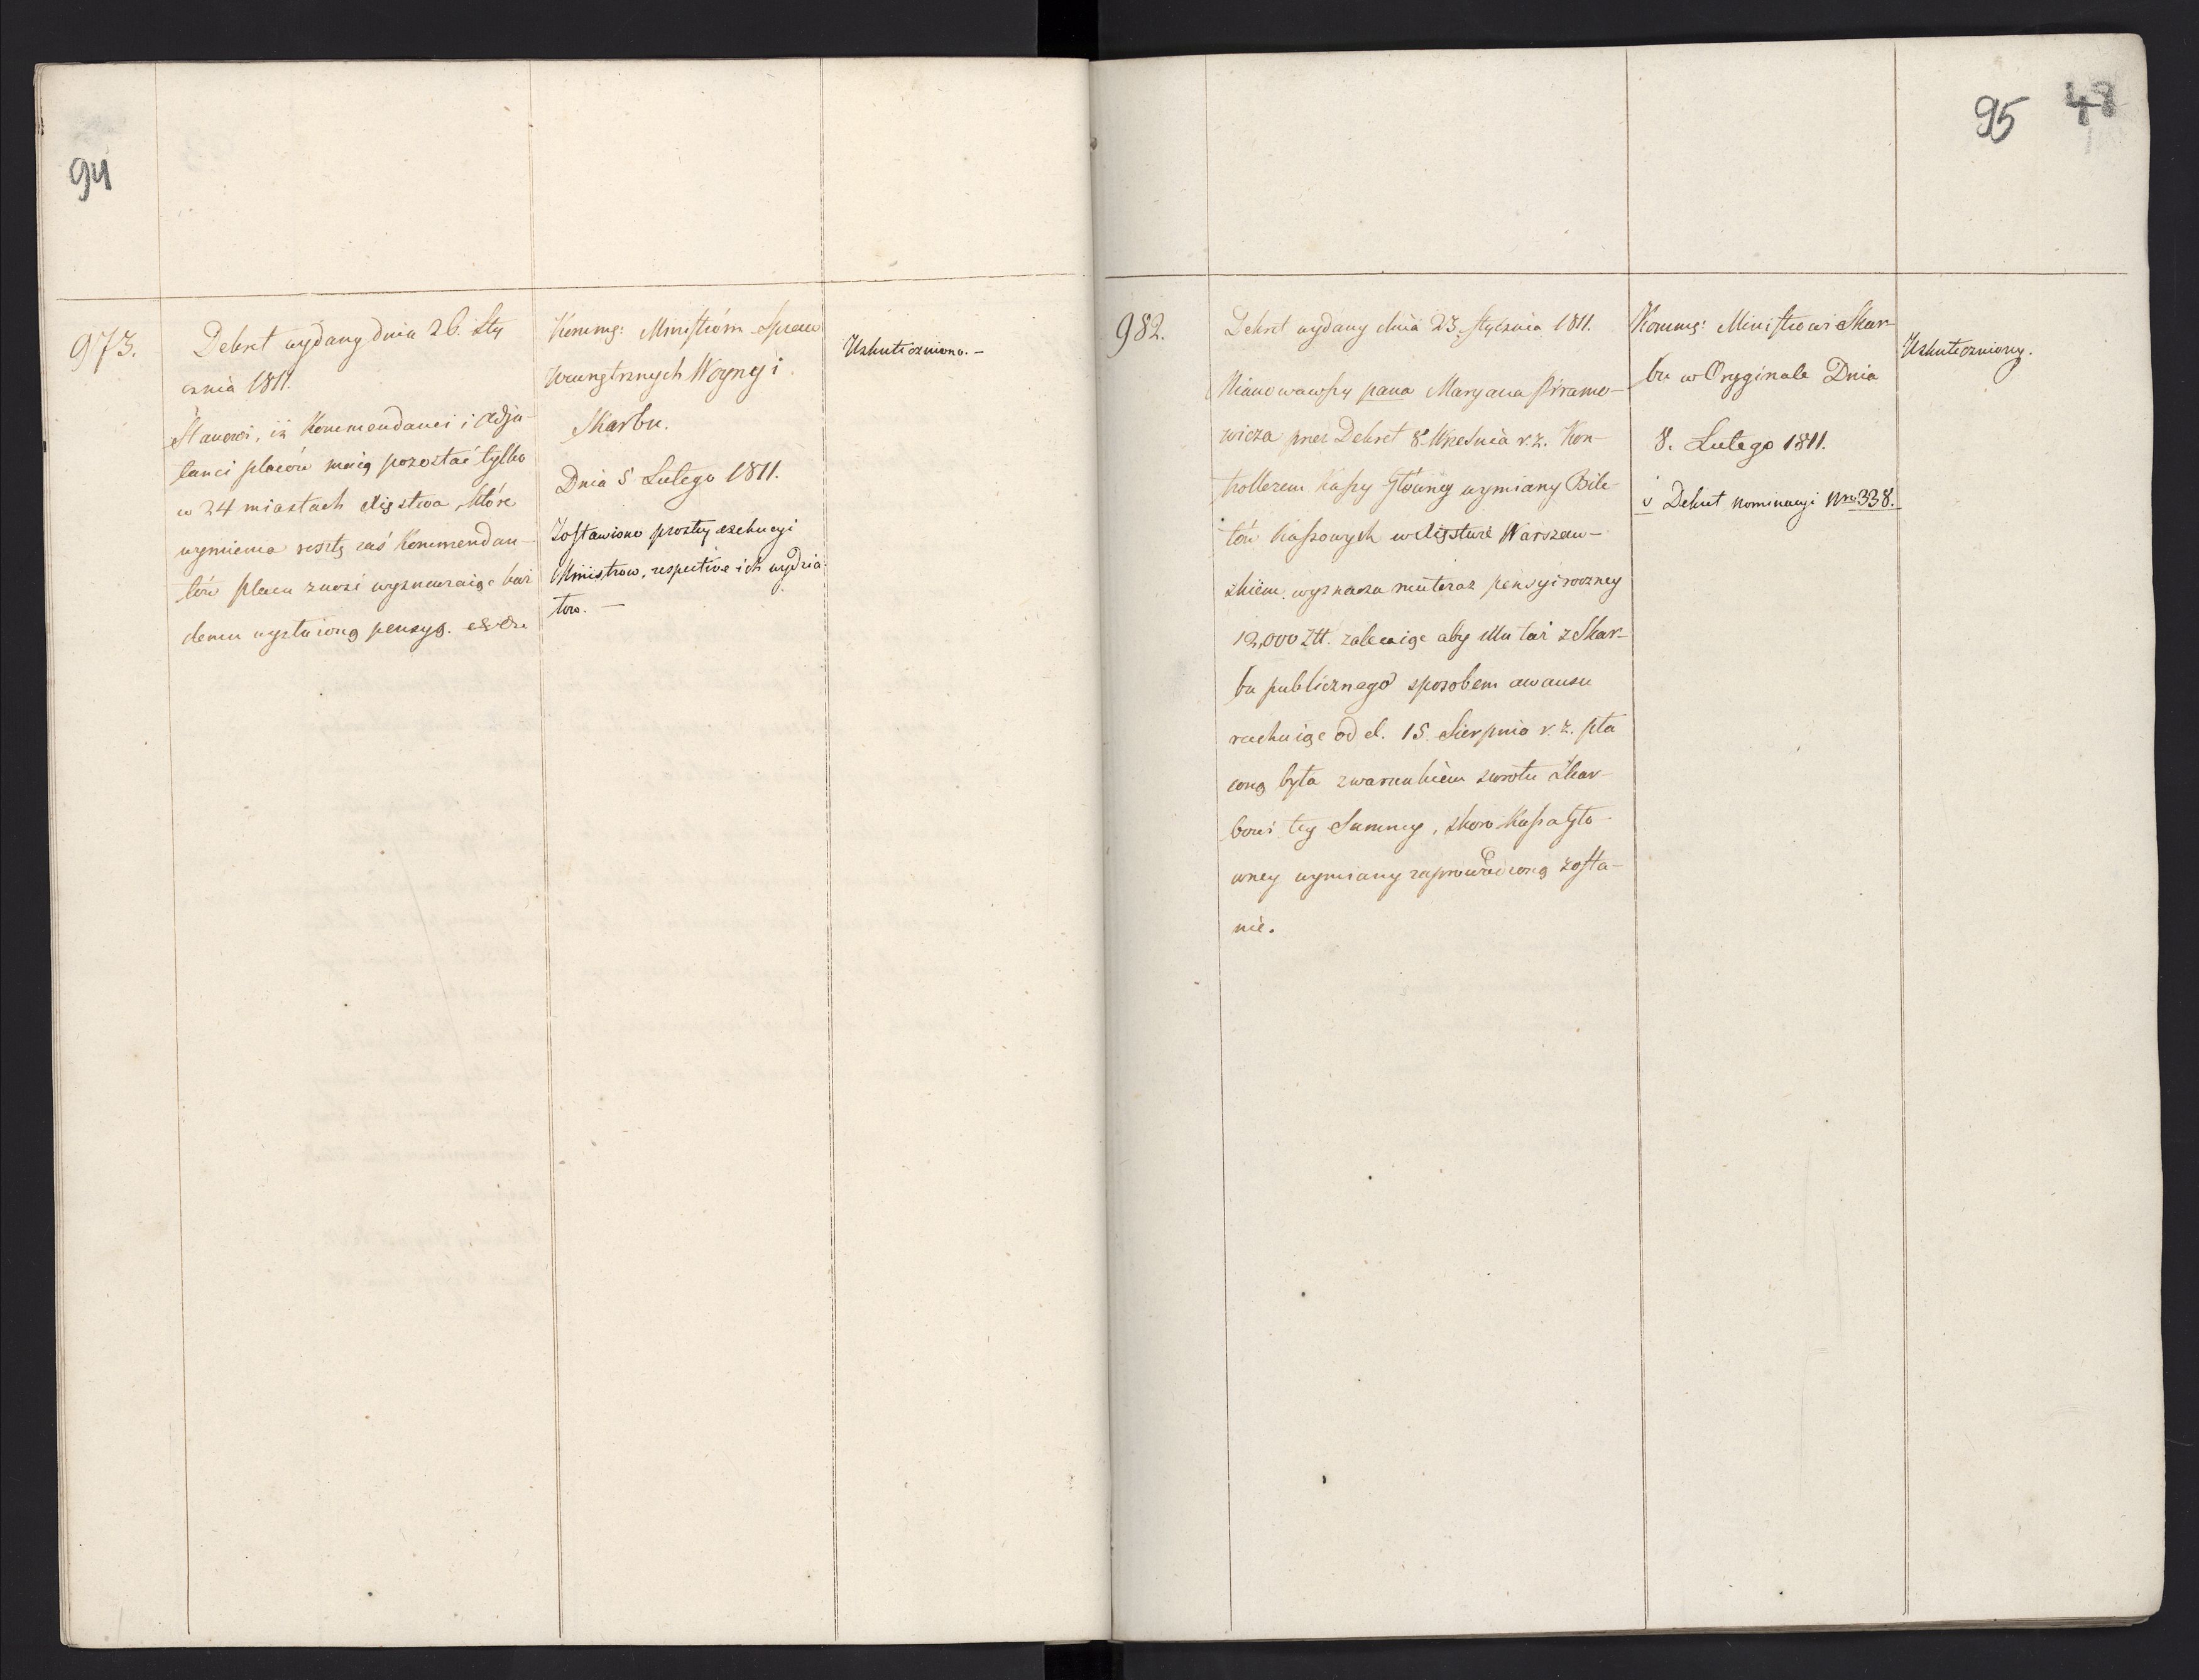 94
973.
Dekret wydany dnia 26. Sty
cznia 1811.
Stanowi, iż Kommendanci i Adju-
tanci placów maią pozostać tylko
w 24 miastach Xięstwa, które
wymienia resztę zaś Kommendan-
tów placu znosi wyznaczaiąc każ
demu wysłużoną pensyą.
Kommę: Ministróm Spraw
Wewnętrznych Woyny i
Skarbu.
Dnia 5 Lutego 1811.
Zostawiono prostey exekucyi
Ministrow, respective ich wydzia-
łow. —
Uskuteczniono. —
95 48
982.
Dekret wydany dnia 23 Stycznia 1811.
Mianowawszy pana Maryana Piramo-
wicza przez Dekret 8. Września r. z. Kon-
trollerem Kassy Główney wymiany Bile-
tów Kassowych w Xięstwie Warszaw-
skiem. wyznacza mu teraz pensyi roczney
12,000 Złł. zalecaiąc aby Mu taż z Skar-
bu publicznego sposobem awansu
rachuiąc od d. 15. Sierpnia r. z. pła
coną była z warunkiem zwrotu Skar-
bowi tey Summy, skoro Kassa Głó-
wney wymiany zaprowadzoną zosta-
nie.
Kommę: Ministrowi Skar-
bu w Oryginale Dnia
8. Lutego 1811.
v Dekret nominacyi Nro 338.
Uskuteczniony.